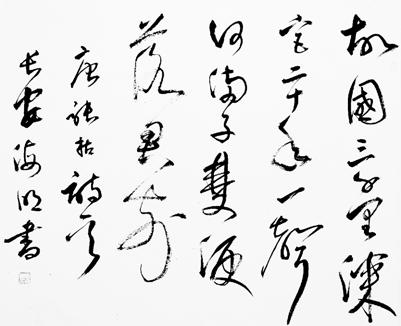 故國三千里深
宮二十年一聲
何滿子雙淚
落君前
唐張祜詩
長安海明書